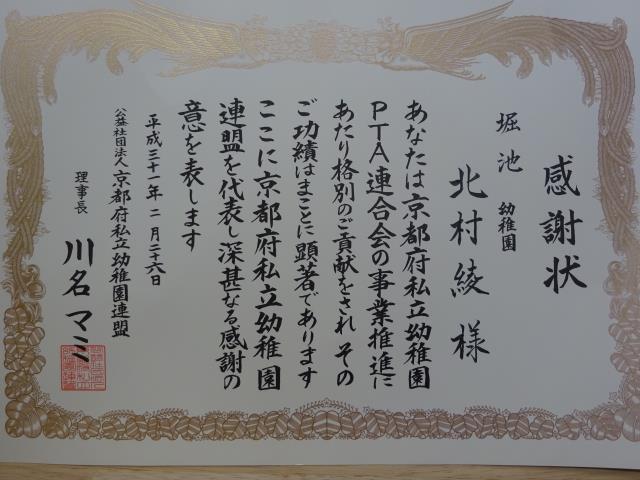 感謝状
堀池 幼稚園
北村綾 様
あなたは京都府私立幼稚園
PTA連合会の事業推進に
あたり格別のご貢献をされ その
ご功績はまことに顕著であります
ここに京都府私立幼稚園
連盟を代表し深甚なる感謝の
意を表します
平成三十一年二月二十六日
公益社団法人 京都府私立幼稚園連盟
理事長 川名マミ